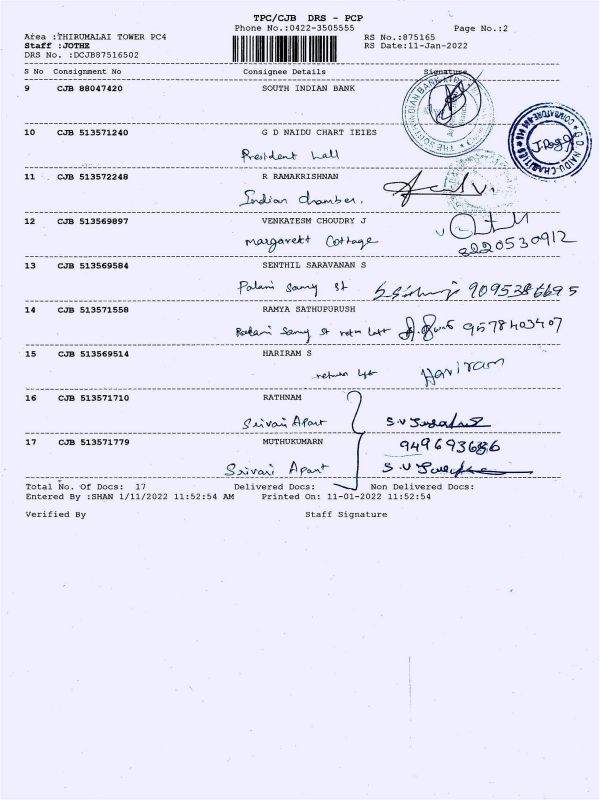 TPC/CJB DRS - PCP
Phone No.:0422-3505555 Page No.:2
Area :THIRUMALAI TOWER PC4 RS No.:875165
Staff :JOTHE RS Date:11-Jan-2022
DRS No. :DCJB87516502
S No Consignment No Consignee Details Signature
9 CJB 88047420 SOUTH INDIAN BANK
10 CJB 513571240 G D NAIDU CHART IEIES
President hall
11 CJB 513572248 R RAMAKRISHNAN
Indian chamber.
12 CJB 513569897 VENKATESM CHOUDRY J
margarett Cottage 8220530912
13 CJB 513569584 SENTHIL SARAVANAN S
Palani Samy St 9095386695
14 CJB 513571558 RAMYA SATHUPURUSH
Palani Samy St retn left 9578403407
15 CJB 513569514 HARIRAM S
return left Hariram
16 CJB 513571710 RATHNAM
Srivari Apart
17 CJB 513571779 MUTHUKUMARN 949693686
Srivari Apart
Total No. Of Docs: 17 Delivered Docs: Non Delivered Docs:
Entered By :SHAN 1/11/2022 11:52:54 AM Printed On: 11-01-2022 11:52:54
Verified By Staff Signature